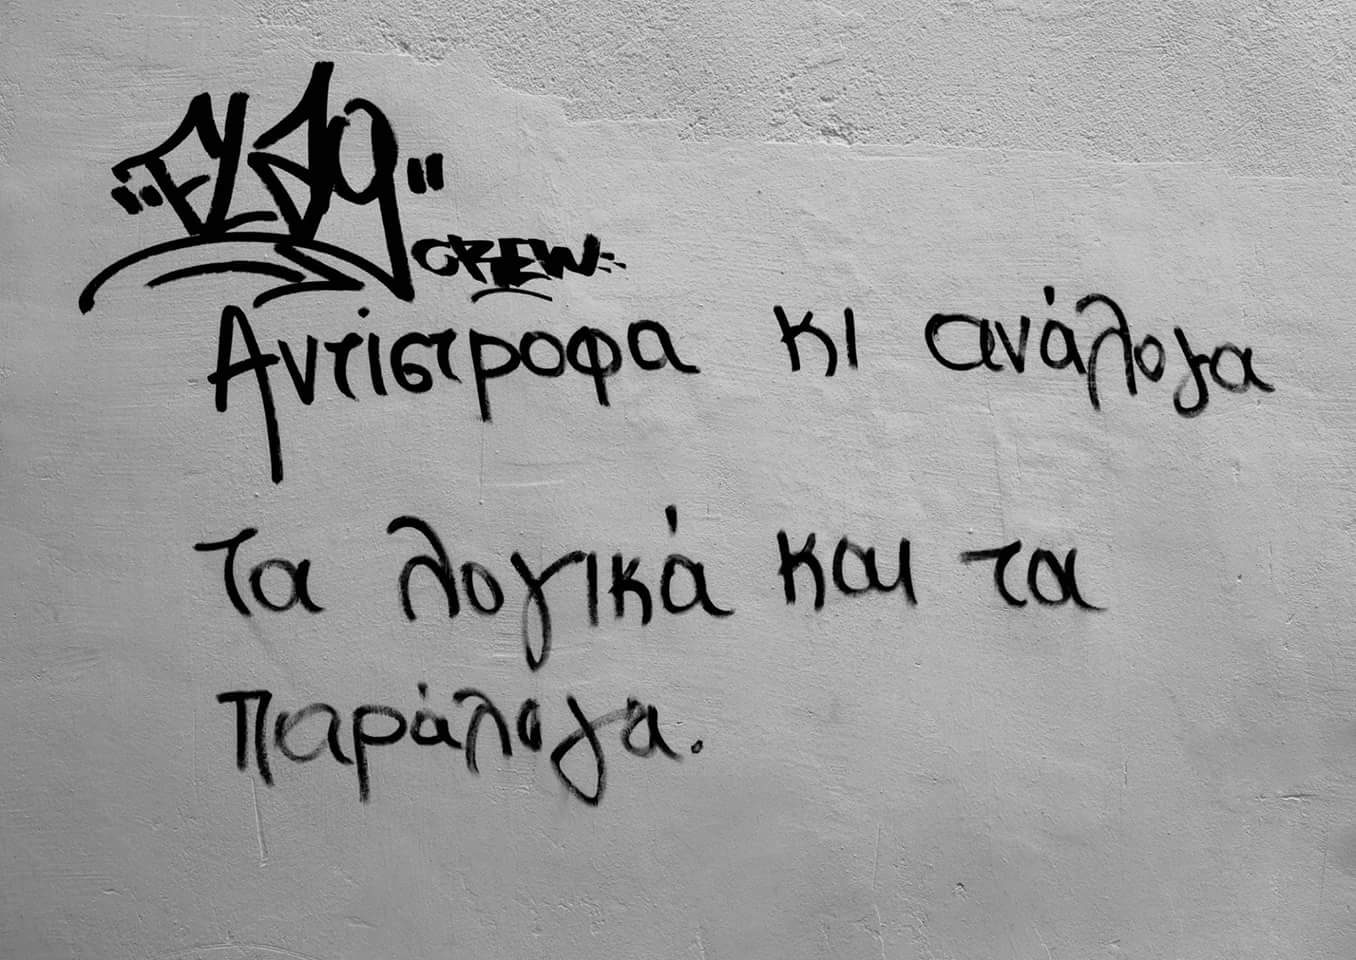 "FLAq"
CREW
Αντίστροφα κι ανάλογα
τα λογικά και τα
παράλογα.